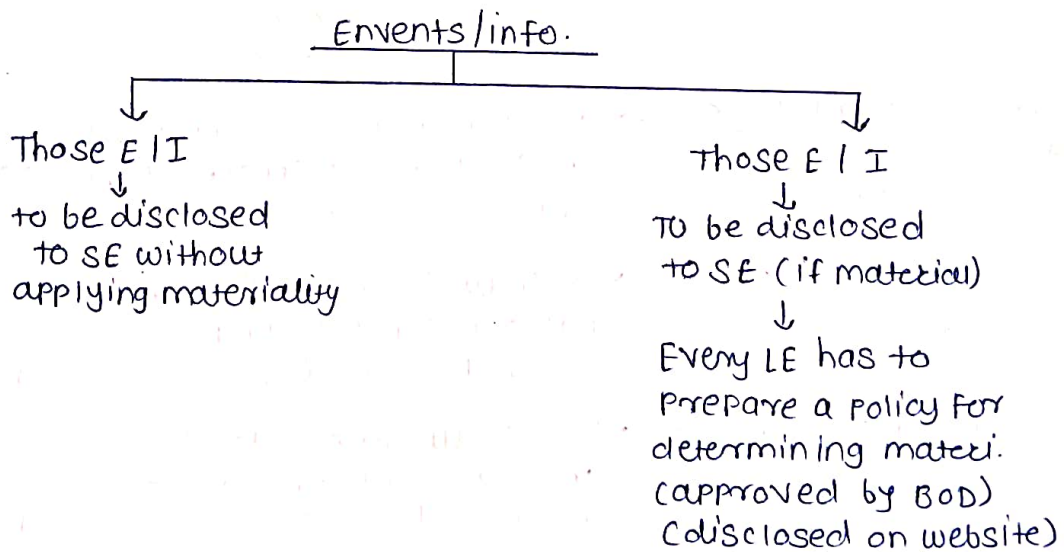 Envents/info.
Those E/I
to be disclosed
to SE without
applying materiality
Those E/I
To be disclosed
to SE (if material)
Every LE has to
prepare a policy for
determining materi.
(approved by BOD)
(disclosed on website)